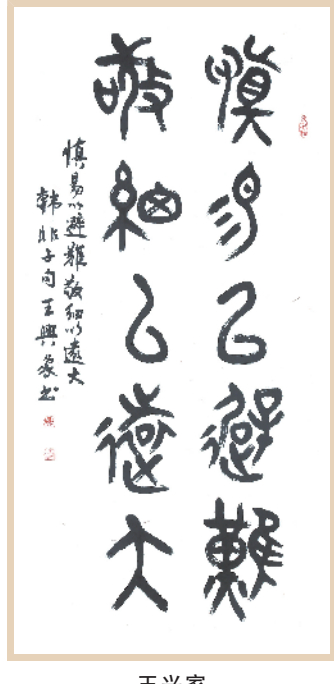 慎易以避難
敬細以遠大
慎易以避難敬細以遠大
韓非子句王興家书
王兴家